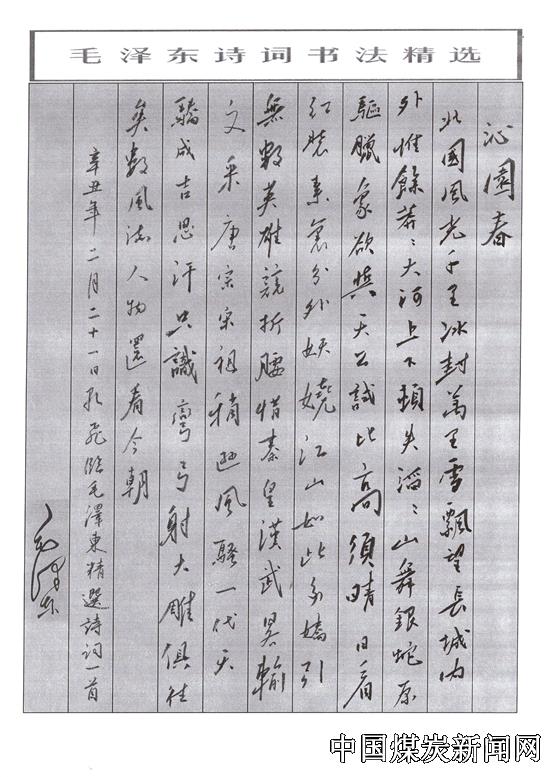 毛泽东诗词书法精选
沁園春
北國風光千里冰封萬里雪飄望長城内
外惟餘莽〻大河上下頓失滔〻山舞銀蛇原
驅臘象欲與天公試比高須晴日看
红裝素裹分外妖嬈江山如此多嬌引
無數英雄競折腰惜秦皇漢武畧輸
文采唐宗宋祖稍遜風騷一代天
驕成吉思汗只識彎弓射大雕俱往
矣數風流人物還看今朝
辛丑年二月二十一日飛臨毛澤東精選詩詞一首
毛泽东
中国煤炭新闻网